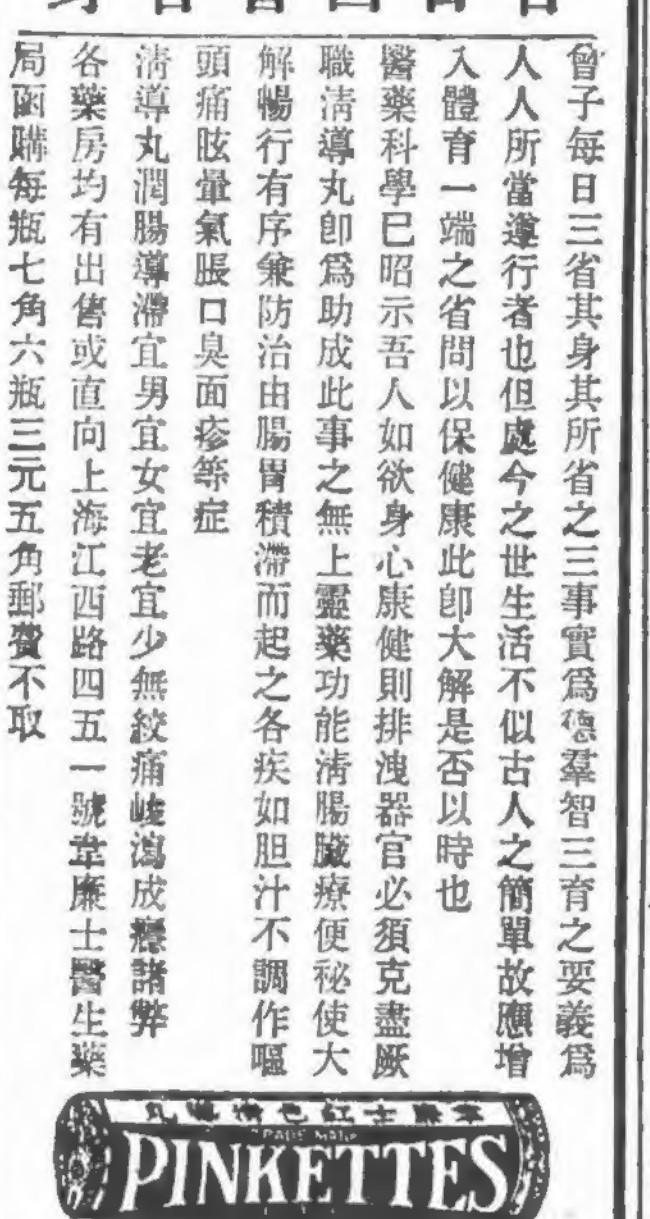 曾子每日三省其身其所省之三事實爲德羣智三育之要義爲
人人所當遵行者也但處今之世生活不似古人之簡單故應增
入體育一端之省問以保健康此卽大解是否以時也
醫藥科學巳昭示吾人如欲身心康健則排洩器官必須克盡厥
職淸導丸卽爲助成此事之無上靈藥功能淸腸臟療便祕使大
解暢行有序兼防治由腸胃積滯而起之各疾如胆汁不調作嘔
頭痛眩暈氣脹口臭面疹等症
淸導丸潤腸導滯宜男宜女宜老宜少無絞痛峻瀉成癮諸弊
各藥房均有出售或直向上海江西路四五一號韋廉士醫生藥
局函購每瓶七角六瓶三元五角郵費不取
韋廉士紅色淸導丸
TRADE MARK
PINKETTES